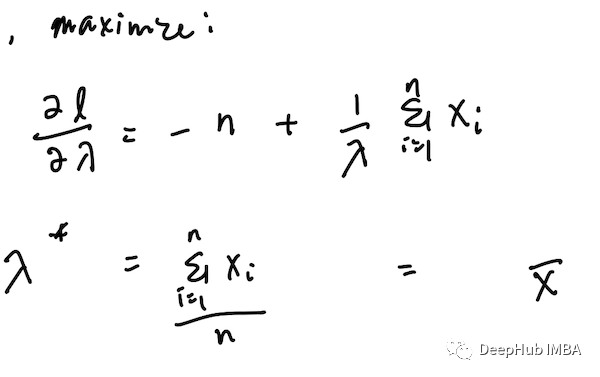 , maximize:
∂l/∂λ = - n + 1/λ Σ_{i=1}^{n} x_i
λ* = Σ_{i=1}^{n} x_i / n = x̄
DeepHub IMBA